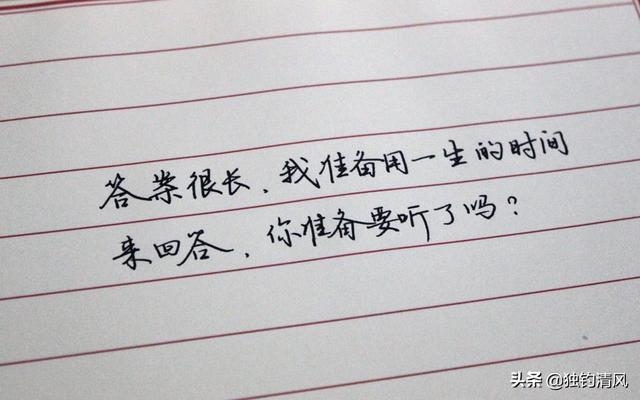 答案很长，我准备用一生的时间
来回答，你准备要听了吗？
头条 @独钓清风